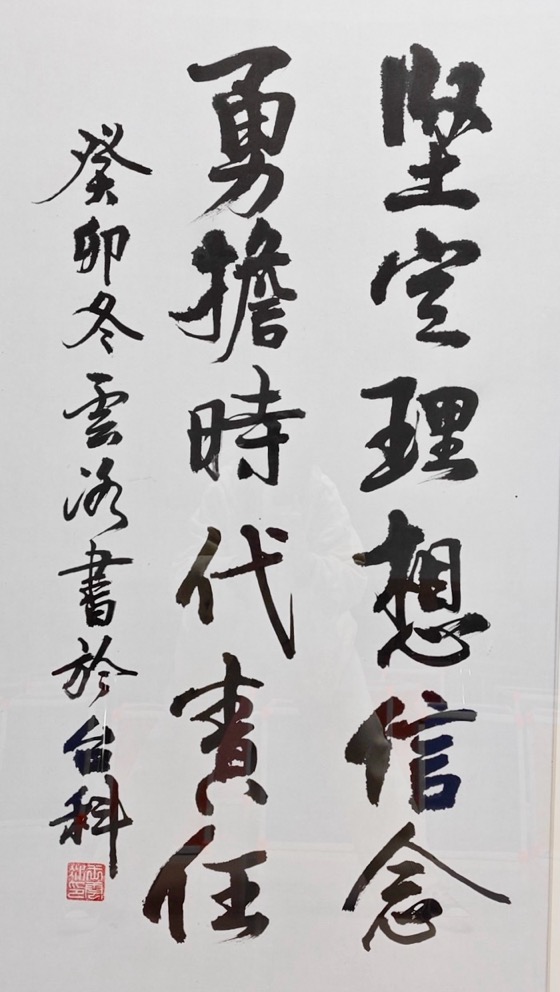 堅定理想信念
勇擔時代責任
癸卯冬雲洛書於台科